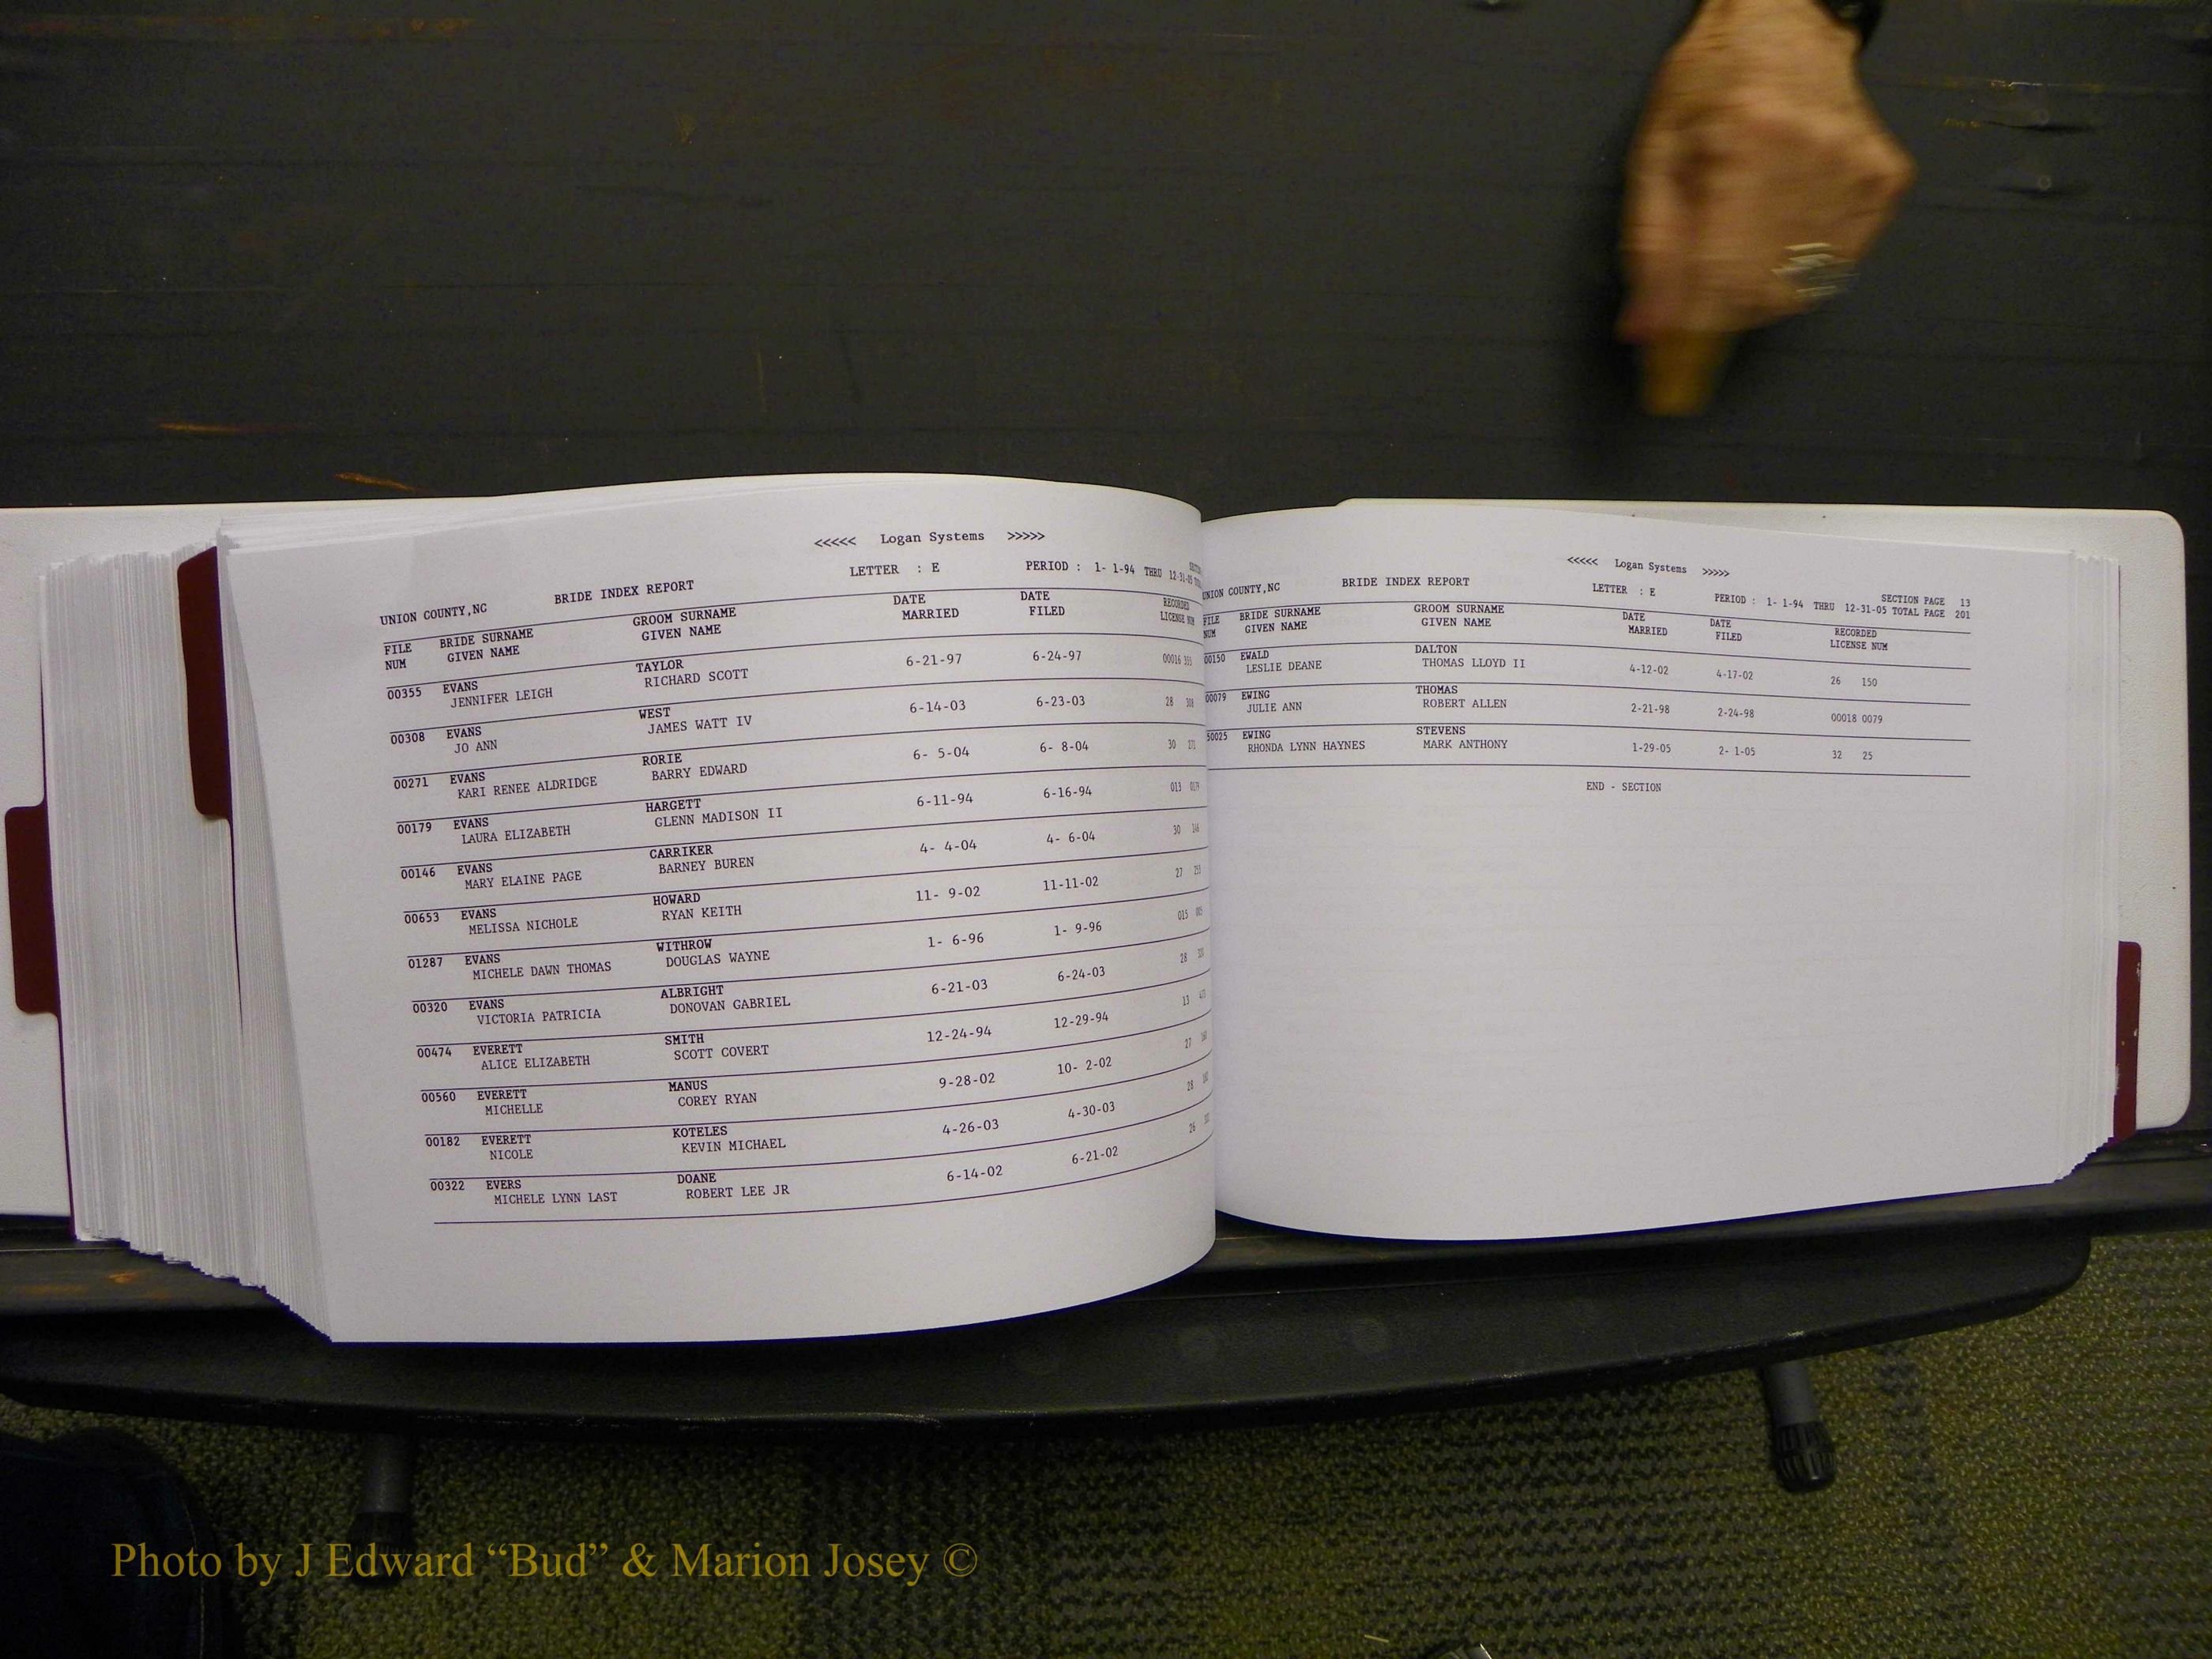 <<<<< Logan Systems >>>>>
UNION COUNTY,NC BRIDE INDEX REPORT LETTER : E PERIOD : 1- 1-94 THRU 12-31-05
FILE BRIDE SURNAME GROOM SURNAME DATE DATE RECORDED
NUM GIVEN NAME GIVEN NAME MARRIED FILED LICENSE NUM
00355 EVANS TAYLOR 6-21-97 6-24-97 00016
JENNIFER LEIGH RICHARD SCOTT
00308 EVANS WEST 6-14-03 6-23-03 28 308
JO ANN JAMES WATT IV
00271 EVANS RORIE 6- 5-04 6- 8-04 30
KARI RENEE ALDRIDGE BARRY EDWARD
00179 EVANS HARGETT 6-11-94 6-16-94 013
LAURA ELIZABETH GLENN MADISON II
00146 EVANS CARRIKER 4- 4-04 4- 6-04 30
MARY ELAINE PAGE BARNEY BUREN
00653 EVANS HOWARD 11- 9-02 11-11-02 27
MELISSA NICHOLE RYAN KEITH
01287 EVANS WITHROW 1- 6-96 1- 9-96 015
MICHELE DAWN THOMAS DOUGLAS WAYNE
00320 EVANS ALBRIGHT 6-21-03 6-24-03 28
VICTORIA PATRICIA DONOVAN GABRIEL
00474 EVERETT SMITH 12-24-94 12-29-94 13
ALICE ELIZABETH SCOTT COVERT
00560 EVERETT MANUS 9-28-02 10- 2-02 27
MICHELLE COREY RYAN
00182 EVERETT KOTELES 4-26-03 4-30-03 28
NICOLE KEVIN MICHAEL
00322 EVERS DOANE 6-14-02 6-21-02 26
MICHELE LYNN LAST ROBERT LEE JR
<<<<< Logan Systems >>>>>
SECTION PAGE 13
UNION COUNTY,NC BRIDE INDEX REPORT LETTER : E PERIOD : 1- 1-94 THRU 12-31-05 TOTAL PAGE 201
FILE BRIDE SURNAME GROOM SURNAME DATE DATE RECORDED
NUM GIVEN NAME GIVEN NAME MARRIED FILED LICENSE NUM
00150 EWALD DALTON 4-12-02 4-17-02 26 150
LESLIE DEANE THOMAS LLOYD II
00079 EWING THOMAS 2-21-98 2-24-98 00018 0079
JULIE ANN ROBERT ALLEN
50025 EWING STEVENS 1-29-05 2- 1-05 32 25
RHONDA LYNN HAYNES MARK ANTHONY
END - SECTION
Photo by J Edward “Bud” & Marion Josey ©